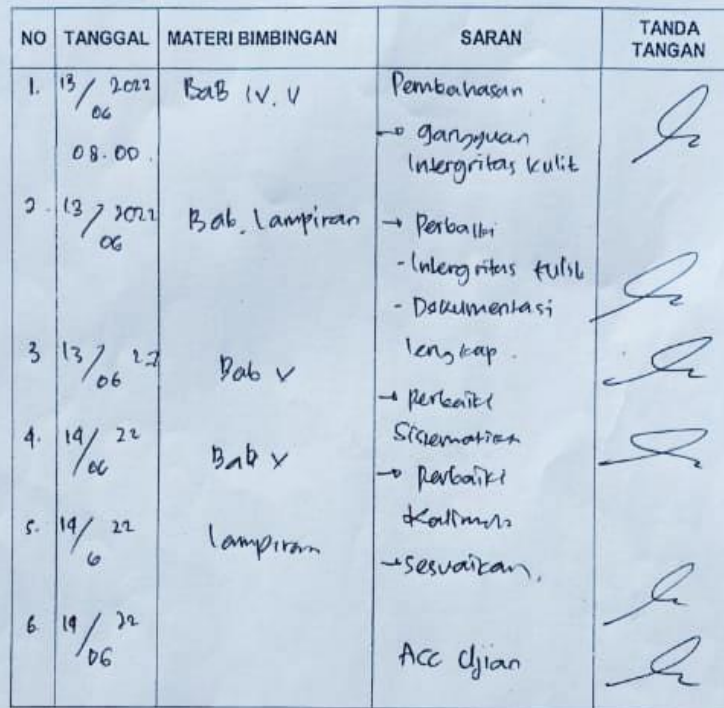 NO TANGGAL MATERI BIMBINGAN SARAN TANDA TANGAN
1. 13/06 2022 BaB IV. V Pembahasan
→ gangguan
08.00. Intergritas kulit
2. 13/06 2022 Bab. Lampiran → Perbaiki
- Intergritas kulit
- Dokumentasi
lengkap.
3 13/06 22 Bab V
→ perbaiki
4. 14/06 22 Bab V Sistematika
→ Perbaiki
5. 14/6 22 lampiran Kalimat
→ sesuaikan.
6 14/06 22 Acc Ujian